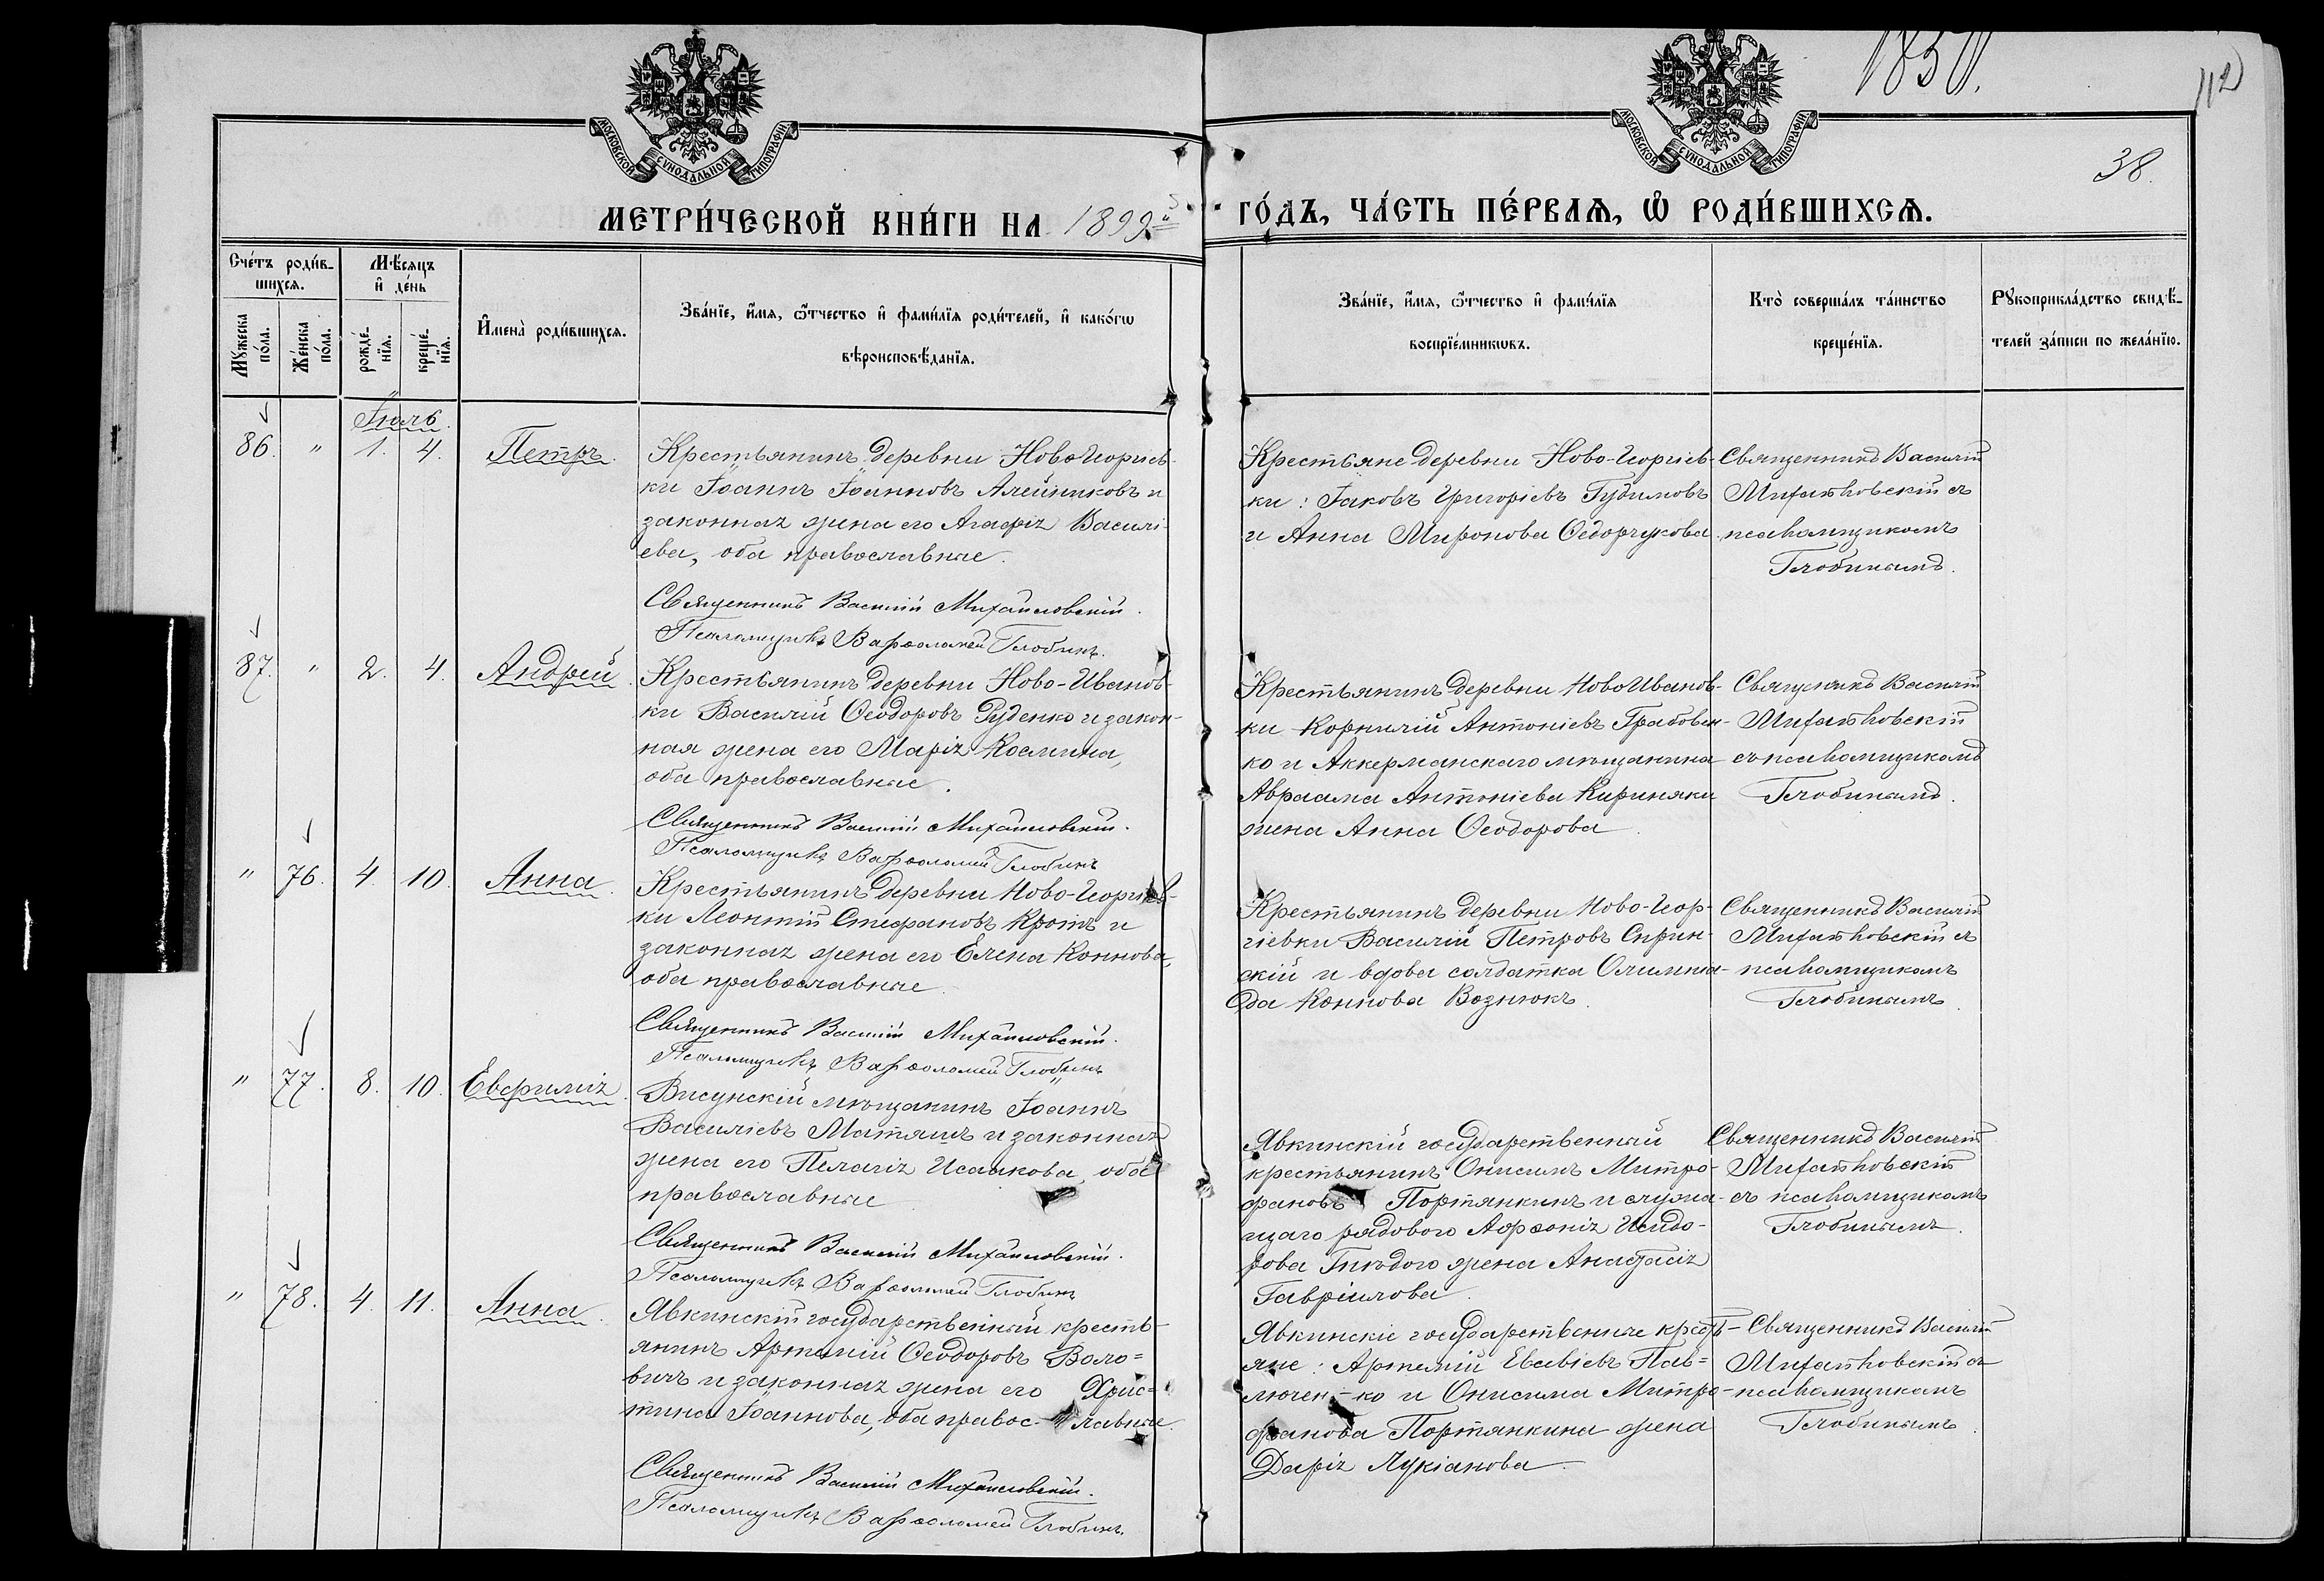 1850.
112
38.
МОСКОВСКОЙ СѴНОДАЛЬНОЙ ТИПОГРАФІИ
МОСКОВСКОЙ СѴНОДАЛЬНОЙ ТИПОГРАФІИ
МЕТРИ́ЧЕСКОЙ КНИ́ГИ НА 1899й ГО́ДЪ, ЧА́СТЬ ПЕ́РВАѦ, Ѽ РОДИ́ВШИХСѦ.
Сче́тъ роди́в-
шихсѧ.
Мѣ́сяцъ
и҆ де́нь
Мꙋ́жеска по́ла.
Же́нска по́ла.
рожде́-
нїѧ.
креще́-
нїѧ.
И҆мена̀ роди́вшихсѧ.
Зва́нїе, и҆́мѧ, ѻ҆́тчество и҆ фами́лїѧ роди́телей, и҆ како́гѡ
вѣроисповѣ́данїѧ.
Зва́нїе, и҆́мѧ, ѻ҆́тчество и҆ фами́лїѧ
воспрїе́мникѡвъ.
Кто̀ соверша́лъ та́инство
креще́нїѧ.
Рꙋкоприкла́дство свидѣ́-
телей за́писи по жела́нїю.
Іюль.
86. " 1. 4. Петръ.
Крестьянинъ деревни Ново Георгіев-
ки Іоаннъ Іоанновъ Алейниковъ и
законная жена его Агафія Василі-
ева, оба православные.
Священникъ Василій Михайловскій.
Псаломщикъ Варѳоломей Глобинъ.
Крестьяне деревни Ново-Георгіев-
ки: Іаковъ Григоріевъ Гудимовъ
и Анна Миронова Ѳедорчукова.
Священникъ Василій
Михайловскій съ
псаломщикомъ
Глобинымъ.
87. " 2. 4. Андрей.
Крестьянинъ деревни Ново-Иванов-
ки Василій Ѳеодоровъ Руденко и закон-
ная жена его Марія Космина,
оба православные.
Священникъ Василій Михайловскій.
Псаломщикъ Варѳоломей Глобинъ
Крестьянинъ деревни Ново Иванов-
ки Корнилій Антоніевъ Грабовен-
ко и Аккерманскаго мѣщанина
Авраама Антоніева Кириняки
жена Анна Ѳеодорова.
Священникъ Василій
Михайловскій
съ псаломщикомъ
Глобинымъ.
" 76. 4. 10. Анна.
Крестьянинъ деревни Ново-Георгіев-
ки Леонтій Стефановъ Кротъ и
законная жена его Елена Коннова,
оба православные.
Священникъ Василій Михайловскій.
Псаломщикъ Варѳоломей Глобинъ
Крестьянинъ деревни Ново-Геор-
гіевки Василій Петровъ Сприн-
скій и вдова солдатка Олимпіа-
да Коннова Вознюкъ.
Священникъ Василій
Михайловскій съ
псаломщикомъ
Глобинымъ.
" 77. 8. 10. Евфимія.
Висунскій мѣщанинъ Іоаннъ
Василіевъ Матяшъ и законная
жена его Пелагія Исаакова, обое
православные.
Священникъ Василій Михайловскій.
Псаломщикъ Варѳоломей Глобинъ
Явкинскій государственный
крестьянинъ Онисимъ Митро-
фановъ Портянкинъ и служа-
щаго рядового Афѳонія Исидо-
рова Гнѣдого жена Анастасія
Гавріилова.
Священникъ Василій
Михайловскій
съ псаломщикомъ
Глобинымъ.
" 78. 4. 11. Анна.
Явкинскій государственный кресть-
янинъ Артемій Ѳеодоровъ Воло=
вичъ и законная жена его Хрис=
тина Іоаннова, оба правос-лавные.
Священникъ Василій Михайловскій.
Псаломщикъ Варѳоломей Глобинъ.
Явкинскіе государственные кресть-
яне: Артемій Евсвіевъ Пав=
люченко и Онисима Митро-
фанова Портянкина жена
Дарія Лукіанова.
Священникъ Василій
Михайловскій съ
псаломщикомъ
Глобинымъ.